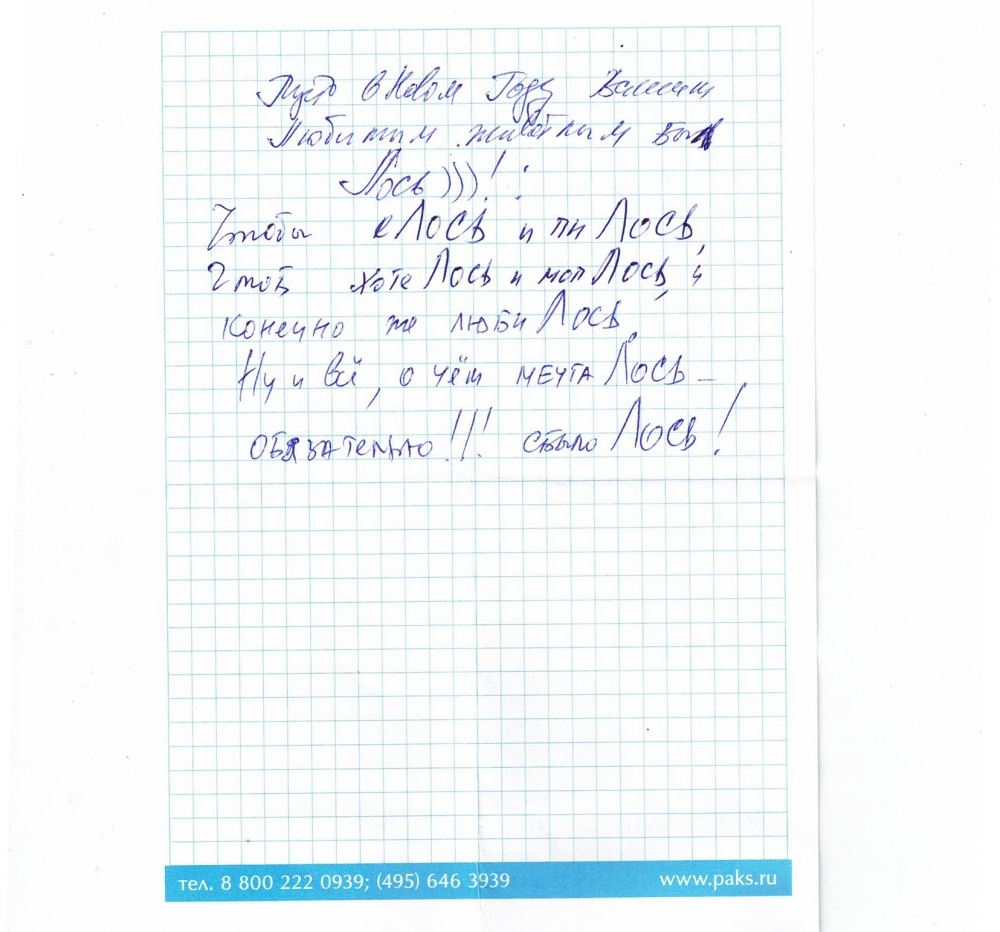 Пусть в Новом Году Вашим
Любимым животным был
Лось)))!:
Чтобы еЛОСЬ и пиЛОСЬ,
Чтоб хотеЛОСЬ и могЛОСЬ, и
конечно же любиЛОСЬ,
Ну и всё, о чём мечтаЛОСЬ –
ОБЯЗАТЕЛЬНО!!! сбылоЛОСЬ!
тел. 8 800 222 0939; (495) 646 3939 www.paks.ru